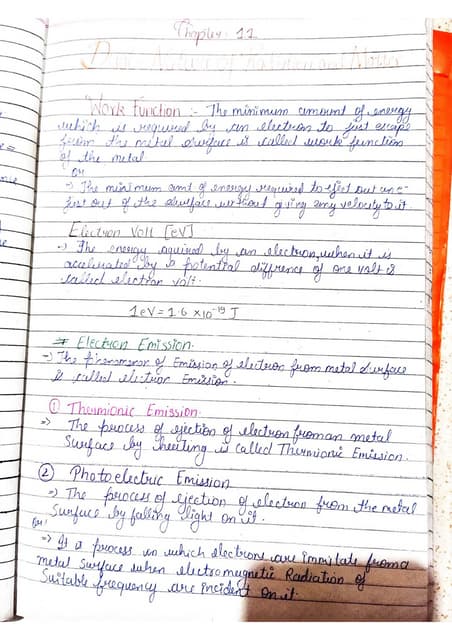 Chapter : 11
Dual Nature of Radiation and Matter
Work Function :- The minimum amount of energy
which is required by an electron to just escape
from the metal surface is called work function
of the metal
or
⇒ The minimum amt of energy required to eject out an e⁻
just out of the surface without giving any velocity to it
Electron Volt [eV]
⇒ The energy aquired by an electron, when it is
accelerated by a potential diffrence of one volt is
called electron volt.
1eV = 1.6 ×10⁻¹⁹ J
# Electron Emission.
⇒ The phenomenon of Emission of electron from metal surface
is called electron Emission.
① Thermionic Emission.
⇒ The process of ejection of electron from an metal
Surface by heating is called Thermionic Emission.
② Photoelectric Emission
⇒ The process of ejection of electron from the metal
Surface by falling light on it.
or
⇒ It is process in which electrons are from a
metal surface when electromagnetic Radiation of
Suitable frequency are incident on it.